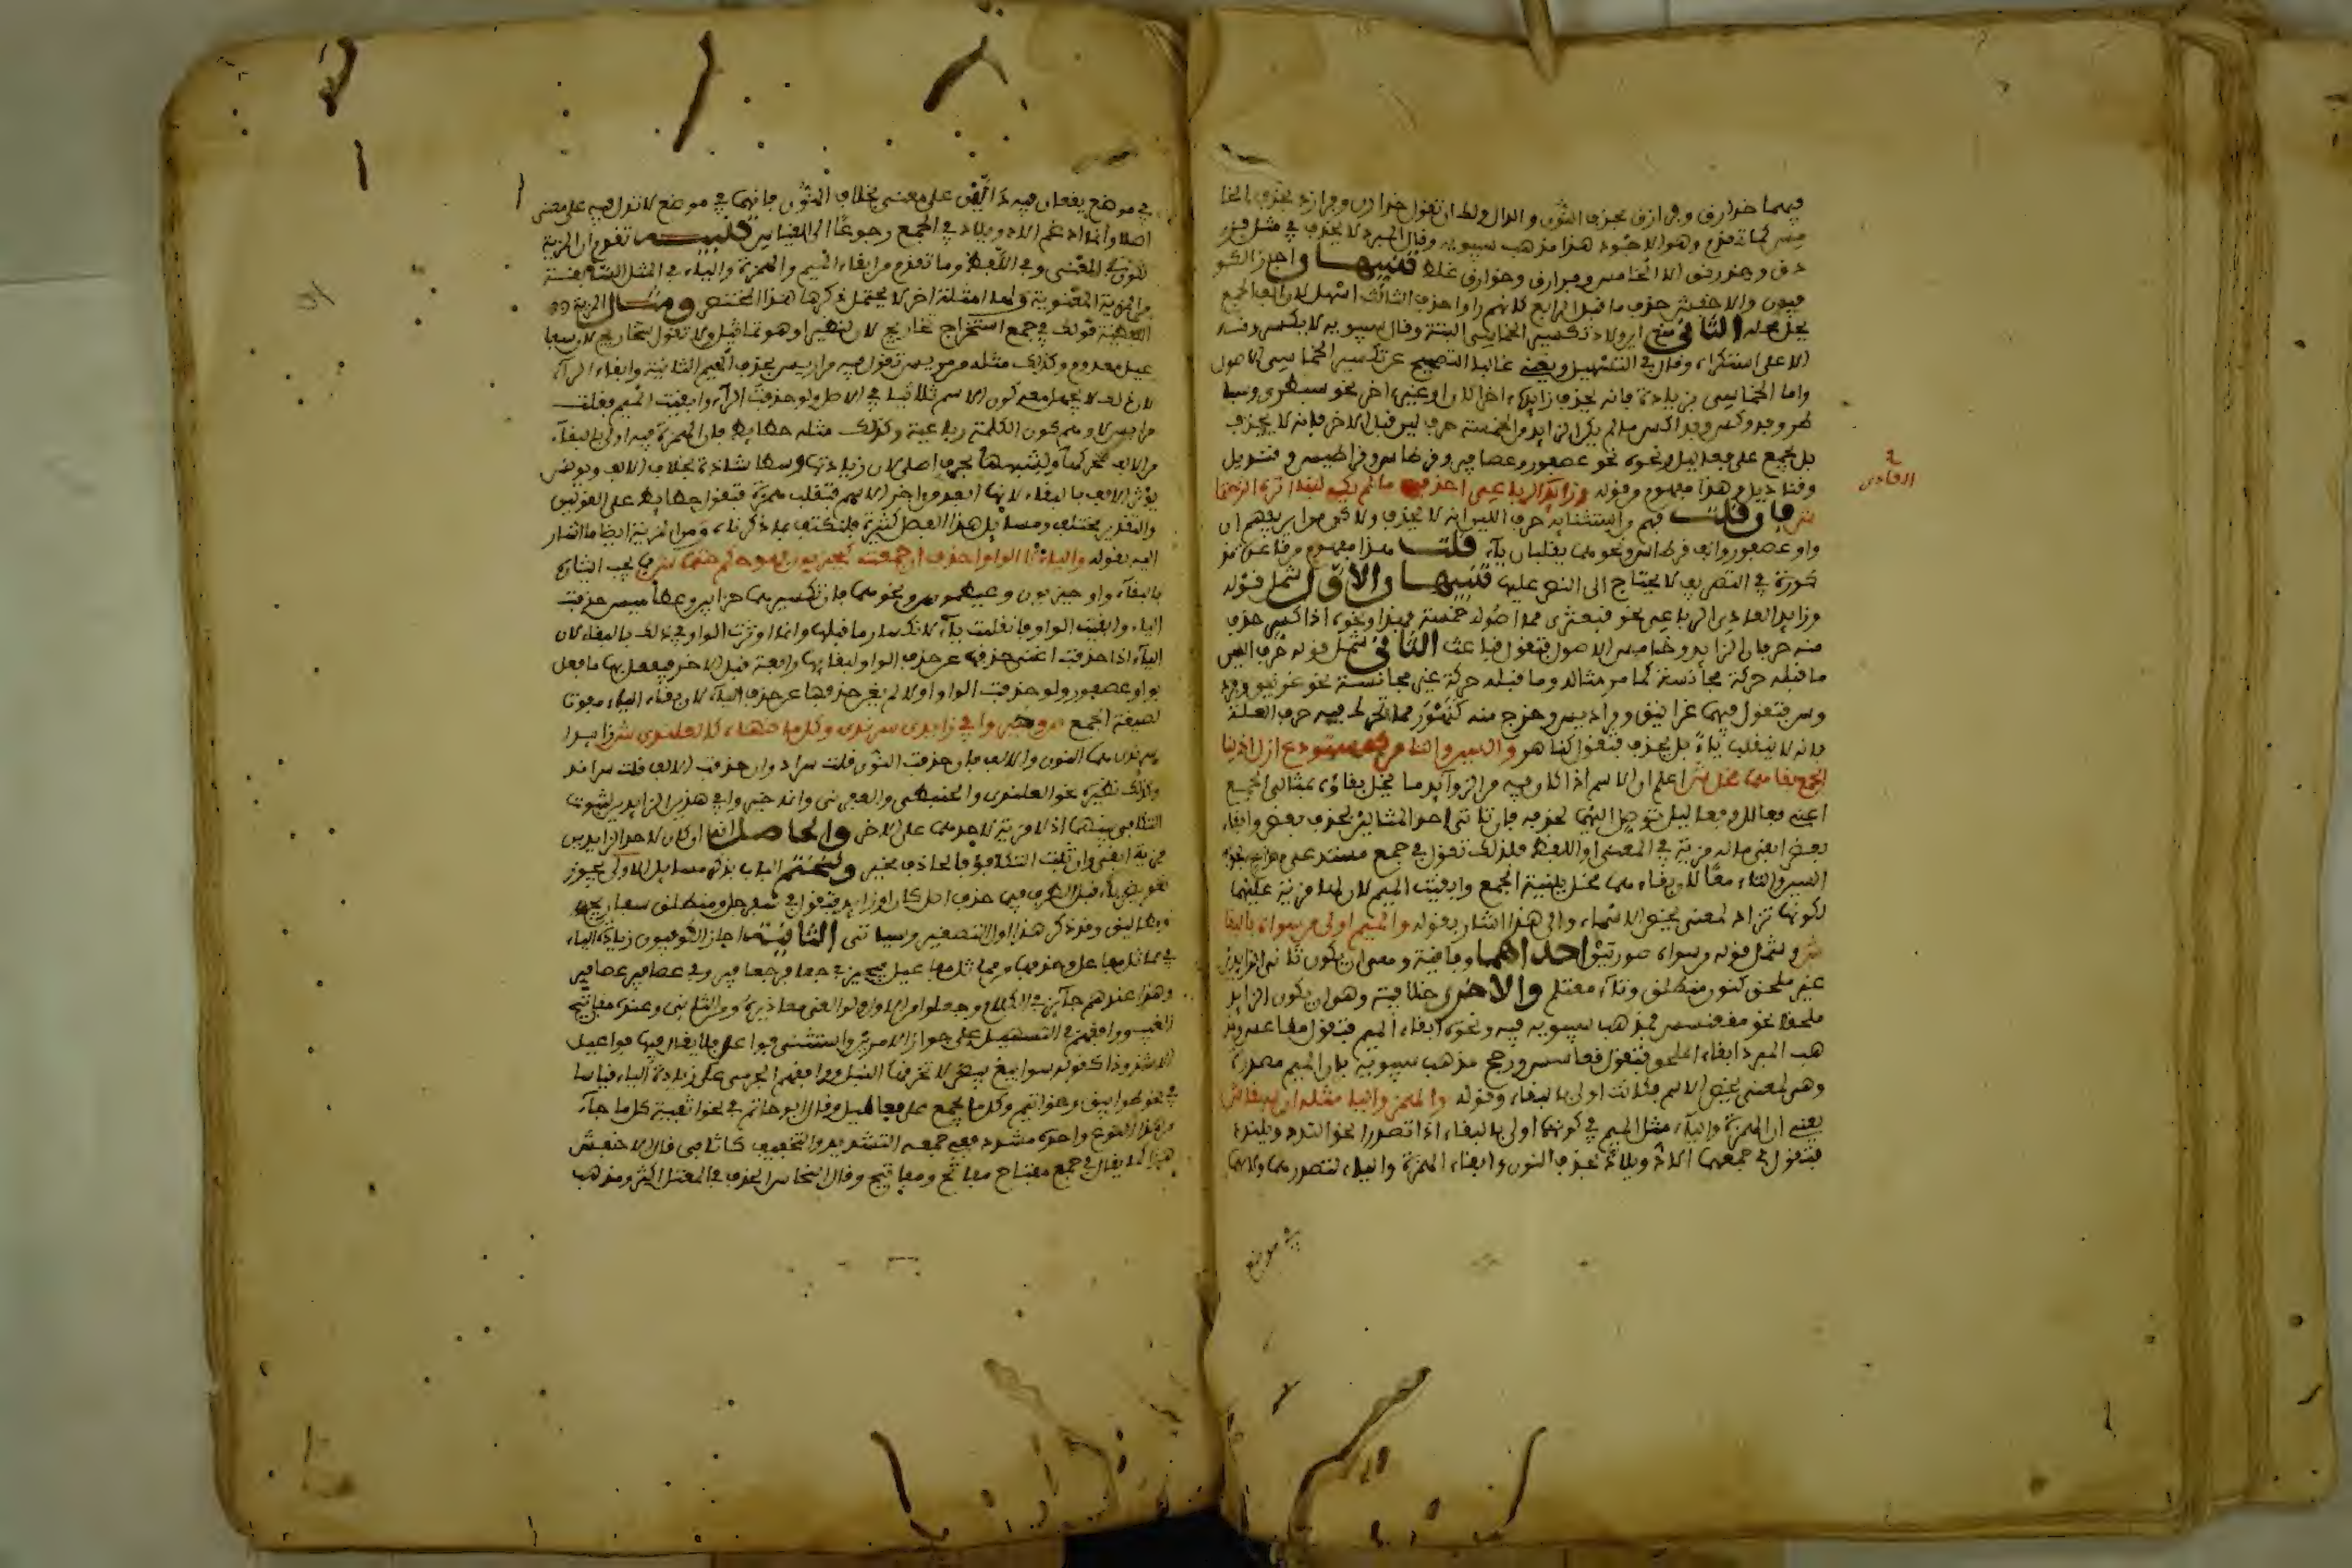 فيهما خوارق وفرازق بحذف النون والدال ولك ان تقول خدارن وفرازد بحذف الخا
مس كما تقدم وهو الاجود هذا مذهب سيبويه وقال المبرد لا يحذف في مثل فرز
دق وخدرنق الا الخامس وفرازق وخوارق غلط تنبيهات واجاز الكو
فيون والاخفش حذف ما قبل الرابع كانهم راوا حذف الثالث اسهل لان الف الجمع
يحل محله الثاني منع ابن ولاد تكسير الخماسي البتة وقال سيبويه لا يكسرونه
الا على استكراه وقال في التسهيل ويغني غالبا التصحيح عن تكسير الخماسي الاصول
واما الخماسي بزيادة فانه يحذف زايده اخرا كان او غير اخر نحو سبطرى وسبا
طر وفدوكس وفداكس ما لم يكن الزايد من الخمسة حرف لين قبل الاخر فانه لا يحذف
بل يجمع على فعاليل ونحوه نحو عصفور وعصافير وقرطاس وقراطيس وقنديل
وقناديل وهذا مفهوم وقوله وزايد العادي الرباعي احذفه ما لم يك لينا اثره اللذ ختما
ش فان قلت فهم واستثنايه حرف اللين انه لا يحذف ولا كن من اين يفهم ان
واو عصفور والف قرطاس ونحوهما يقلبان ياء قلت هذا مفهوم من قاعدة مذ
كورة في التصريف لا يحتاج الى النص عليه تنبيهات الاول شمل قوله
وزايد العادي الرباعي نحو قبعثرى مما اصوله خمسة فهذا ونحوه اذا كسر حذف
منه حرفان الزايد وخامس الاصول فتقول قباعث الثاني شمل قوله حرف اللين
ما قبله حركة مجانسة كما مر مثاله وما قبله حركة غير مجانسة نحو غرنيق وفرد
وس فتقول فيهما غرانيق وفراديس وخرج منه كنهور مما تحرك فيه حرف العلة
فانه لا ينقلب ياء بل يحذف فتقول كناهر والسين والتا من كمستدع ازل اذ ببنا
الجمع بقاهما مخل ش اعلم ان الاسم اذا كان فيه من الزوايد ما يخل بقاؤه بمثالى الجمع
اعني فعالل وفعاليل توصل اليهما بحذفه فان تاتى احد المثالين بحذف بعض وابقاء
بعض ابقى ما له مزية في المعنى او اللفظ فلذلك تقول في جمع مستدع مداع بحذف
السين والتاء معا لان بقاءهما مخل ببنية الجمع وابقيت الميم لان لها مزية عليهما
لكونها تزاد لمعنى يخص الاسماء والى هذا اشار بقوله والميم اولى من سواه بالبقا
ش وشمل قوله من سواه صورتين احداهما وفاقية وهي ان يكون ثاني الزايدين
غير ملحق كنون منطلق وتاء مغتلم والاخرى خلافية وهو ان يكون الزايد
ملحقا نحو مقعنسس فمذهب سيبويه فيه ونحوه ابقاء الميم فتقول مقاعس ومذ
هب المبرد ابقاء الملحق فتقول قعاسس ورجح مذهب سيبويه بان الميم مصدرة
وهي لمعنى يخص الاسم فكانت اولى بالبقاء وقوله والهمز واليا مثله ان سبقا ش
يعني ان الهمزة والياء مثل الميم في كونهما اولى بالبقاء اذا تصدرا نحو الندد ويلندد
فتقول في جمعهما الاد ويلاد بحذف النون وابقاء الهمزة والياء لتصدرهما ولانهما
في موضع
في موضع يقعان فيه دالين على معنى بخلاف النون فانها في موضع لا تدل فيه على معنى
اصلا وانما ادغم الاد ويلاد في الجمع رجوعا الى القياس تنبيه تقدم ان المزية
تكون في المعنى وفي اللفظ وما تقدم من ابقاء الميم والهمزة والياء في المثل السابقة
من المزية المعنوية ولها امثلة اخر لا يحتمل ذكرها هذا المختصر ومثال المزية
اللفظية قولك في جمع استخراج تخاريج لان له نظيرا وهو تماثيل ولا تقول سخاريج لان سفا
عيل معدوم وكذلك مثله مرمريس تقول فيه مراريس بحذف الميم الثانية وابقاء الراء
لان ذلك لا يجهل معه كون الاسم ثلاثيا في الاصل ولو حذفت الراء وابقيت الميم فقلت
مراميس لاوهم كون الكلمة رباعية وكذلك مثله حطايط فان الهمزة فيه اولى بالبقاء
من الالف لتحركها ولشبهها بحرف اصلي لان زيادتها وسطا شاذة بخلاف الالف ويونس
يؤثر الالف بالبقاء لانها ابعد من اخر الاسم فتقلب همزة فتقول حطايط على القولين
والتقدير مختلف ومسايل هذا الفصل كثيرة فلنكتف بما ذكرناه ومن المزية ايضا ما اشار
اليه بقوله والياء لا الواو احذف ان جمعت كحيزبون فهو حكم حتما ش فيجب ايثاره
بالبقاء واو حيزبون وعيطموس ونحوهما فان تكسيرهما حزابين وعطاميس حذفت
الياء وابقيت الواو فانقلبت ياء لانكسار ما قبلها وانما اوثرت الواو في ذلك بالبقاء لان
الياء اذا حذفت اغنى حذفها عن حذف الواو لبقايها رابعة قبل الاخر فيفعل بها ما فعل
بواو عصفور ولو حذفت الواو اولا لم يغن حذفها عن حذف الياء لان بقاء الياء مفوتا
لصيغة الجمع وخيروا في زايدى سرندى وكل ما ضاهاه كالعلندى ش زايدا
سرندى هما النون والالف فان حذفت النون قلت سراد وان حذفت الالف قلت سراند
وكذلك نظيره نحو العلندى والحبنطى والعفرنى وانما خيروا في هذين الزايدين لثبوت
التكافى بينهما اذ لا مزية لاحدهما على الاخر والحاصل انه ان كان لاحد الزايدين
مزية ابقي وان ثبت التكافؤ فالحاذف مخير ولنختم الباب بذكر مسايل الاولى يجوز
تعويض ياء قبل الطرف فيما حذف اصل كان او زايد فتقول في سفرجل ومنطلق سفاريج
ومطاليق وقد ذكر هذا اول التصغير وسياتى الثانية اجاز الكوفيون زيادة الياء
في مماثل مفاعل وحذفها من مماثل مفاعيل فيجيزون في جعافر جعافير وفي عصافير عصافر
وهذا عندهم جايز في الكلام وجعلوا من الاول ولو القى معاذيره ومن الثاني وعنده مفاتح
الغيب ووافقهم في التسهيل على جواز الامرين واستثنى فواعل فلا يقال فيها فواعيل
الا شذوذا كقوله سوابيغ بيض لا تخرقها النبل ووافقهم الجرمي على زيادة الياء قياسا
في نحو طوابيق وخواتيم وكل ما يجمع على مفاعيل وقال ابو حاتم في نحو اثفية كل ما جاء
من هذا النوع واحده مشدد ففي جمعه التشديد والتخفيف كاثافي قال الاخفش
هذا كما يقال في جمع مفتاح مفاتح ومفاتيح وقال النحاس الحذف في المعتل اكثر ومذهب